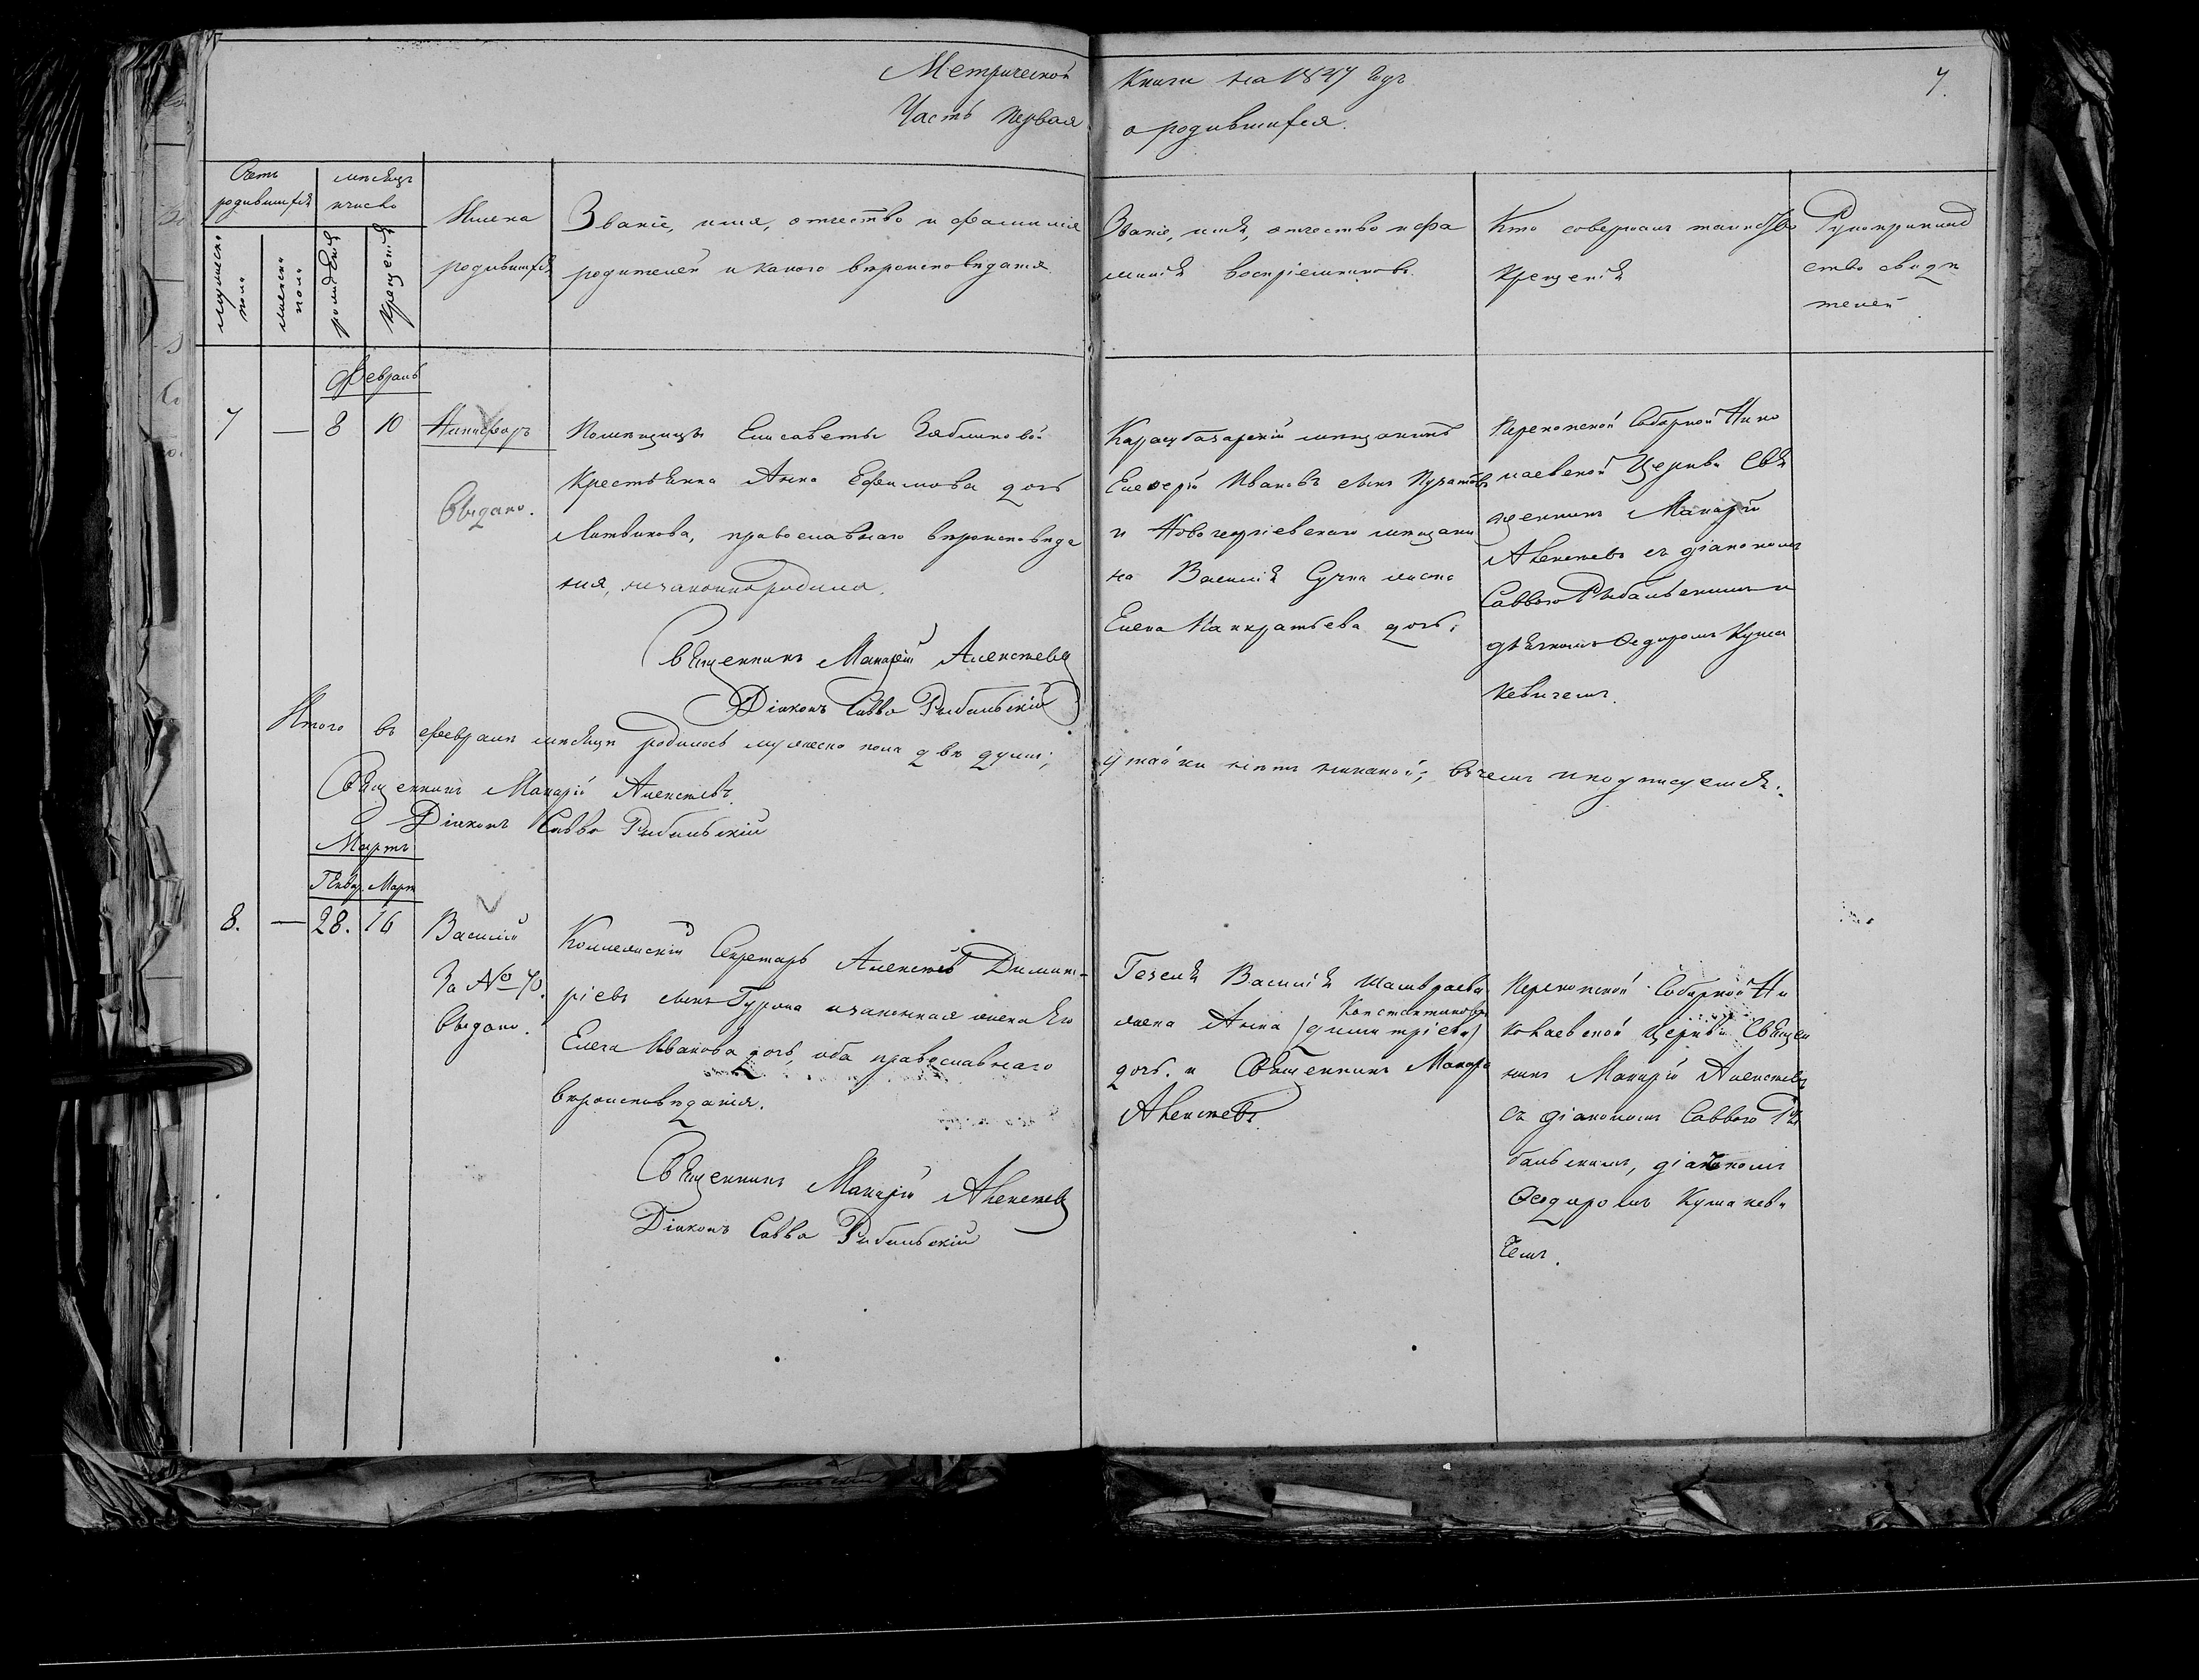 Метрической Книги на 1847 годъ
7.
Часть первая о родившихся.
Счетъ родившихся
мѣсяцъ и число
мужеска пола
женска пола
рожденія
крещенія
Имена
родившихся
Званіе, имя, отчество и фамилія
родителей и какого вѣроисповѣданія
Званіе, имя, отчество и фа
милія воспріемниковъ.
Кто совершалъ таинство
крещенія
Рукоприклад
ство свидѣ
телей
Февраль
7 — 8 10 Никифоръ
Выдано.
Помѣщицы Елисаветы Зябликовой
крестьянка Анна Ефимова дочь
Литвинова, православнаго вѣроисповѣда
нія, незаконнородила.
Священникъ Макарій Алексѣевъ
Діаконъ Савва Рыбальскій
Карасубазарскій мѣщанинъ
Елевферій Ивановъ сынъ
и Новогеоргіевскаго мѣщани
на Василія жена
Елена Панкратьева дочь.
Перекопской Соборной Нико
лаевской Церкви Свя
щенникъ Макарій
Алексѣевъ съ діакономъ
Саввою Рыбальскимъ и
дьячкомъ Ѳедоромъ Куша
кевичемъ.
Итого въ февралѣ мѣсяцѣ родилось мужеска пола двѣ души; утайки нѣтъ никакой; въ чемъ и подписуемся:
Священникъ Макарій Алексѣевъ.
Діаконъ Савва Рыбальскій
Мартъ
Генвар. Март
8. — 28. 16 Василій
За № 70.
Выдано.
Коллежскій Секретарь Алексѣй Димит-
ріевъ сынъ и законная жена его
Елена Иванова дочь, оба православнаго
вѣроисповѣданія.
Священникъ Макарій Алексѣевъ
Діаконъ Савва Рыбальскій
Василія
жена Анна (Димитріева) Константинова
дочь. и Священникъ Макарій
Алексѣевъ
Перекопской Соборной Ни
колаевской Церкви Священ
никъ Макарій Алексѣевъ
съ діакономъ Саввою Ры
бальскимъ, діакономъ
Ѳеодоромъ Кушакеви
чемъ.